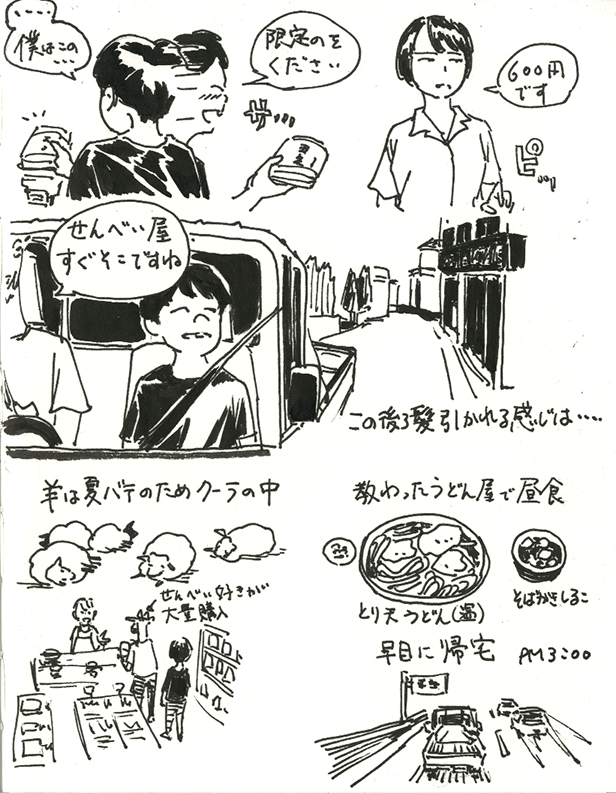 ……
僕はこの
…
限定のを
ください
サ…
600円
です
ピ…
せんべい屋
すぐそこですね
この後ろ髪引かれる感じは‥‥
羊は夏バテのためクーラの中
教わったうどん屋で昼食
せんべい好きが
大量購入
とり天うどん(温)
そばがきしるこ
早目に帰宅 PM3:00